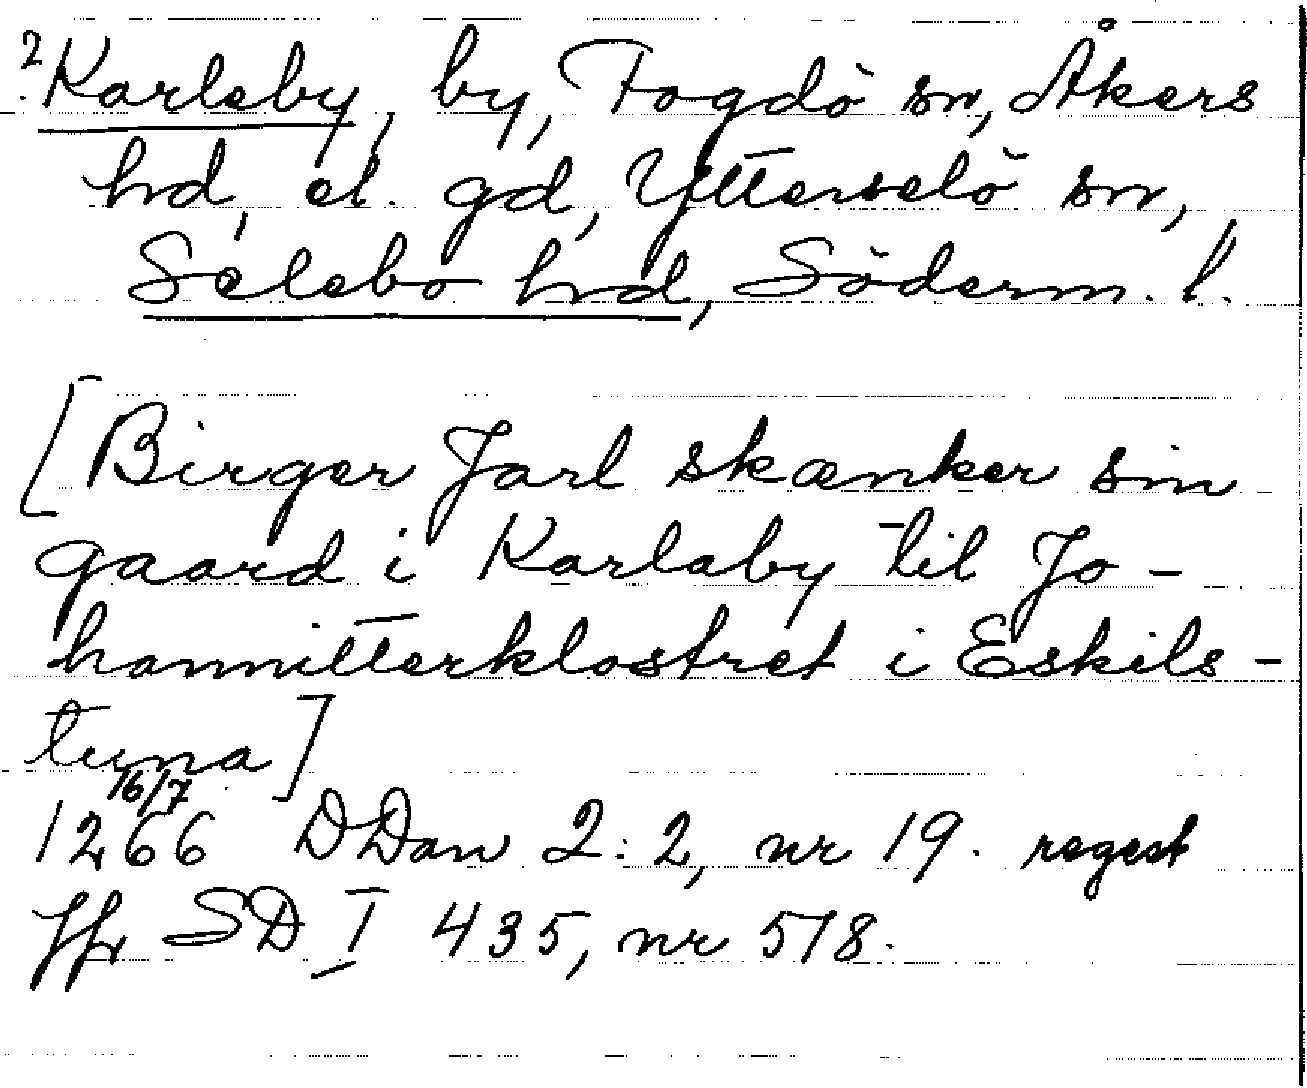 2 Karleby, by, Fogdö sn, Åkers
hd, el. gd, Ytterselö sn,
Selebo hrd, Söderm. l.
[Birger Jarl skænker sin
gaard i Karlaby til Jo-
hannitterklostret i Eskils-
tuna]
1266 16/7 DDan 2:2, nr 19. regest
Jfr SD I 435, nr 518.